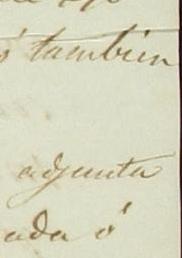 ó tambien
adjunta
ada ó